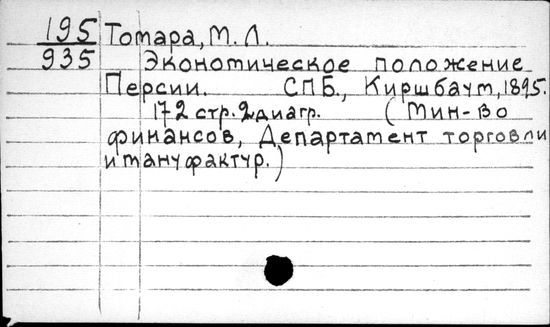 195 Томара, М. Л.
935 Экономическое положение
Персии. СПБ., Киршбаум, 1895.
172 стр. 2 диагр. (Мин-во
финансов, Департамент торговли
и мануфактур.)